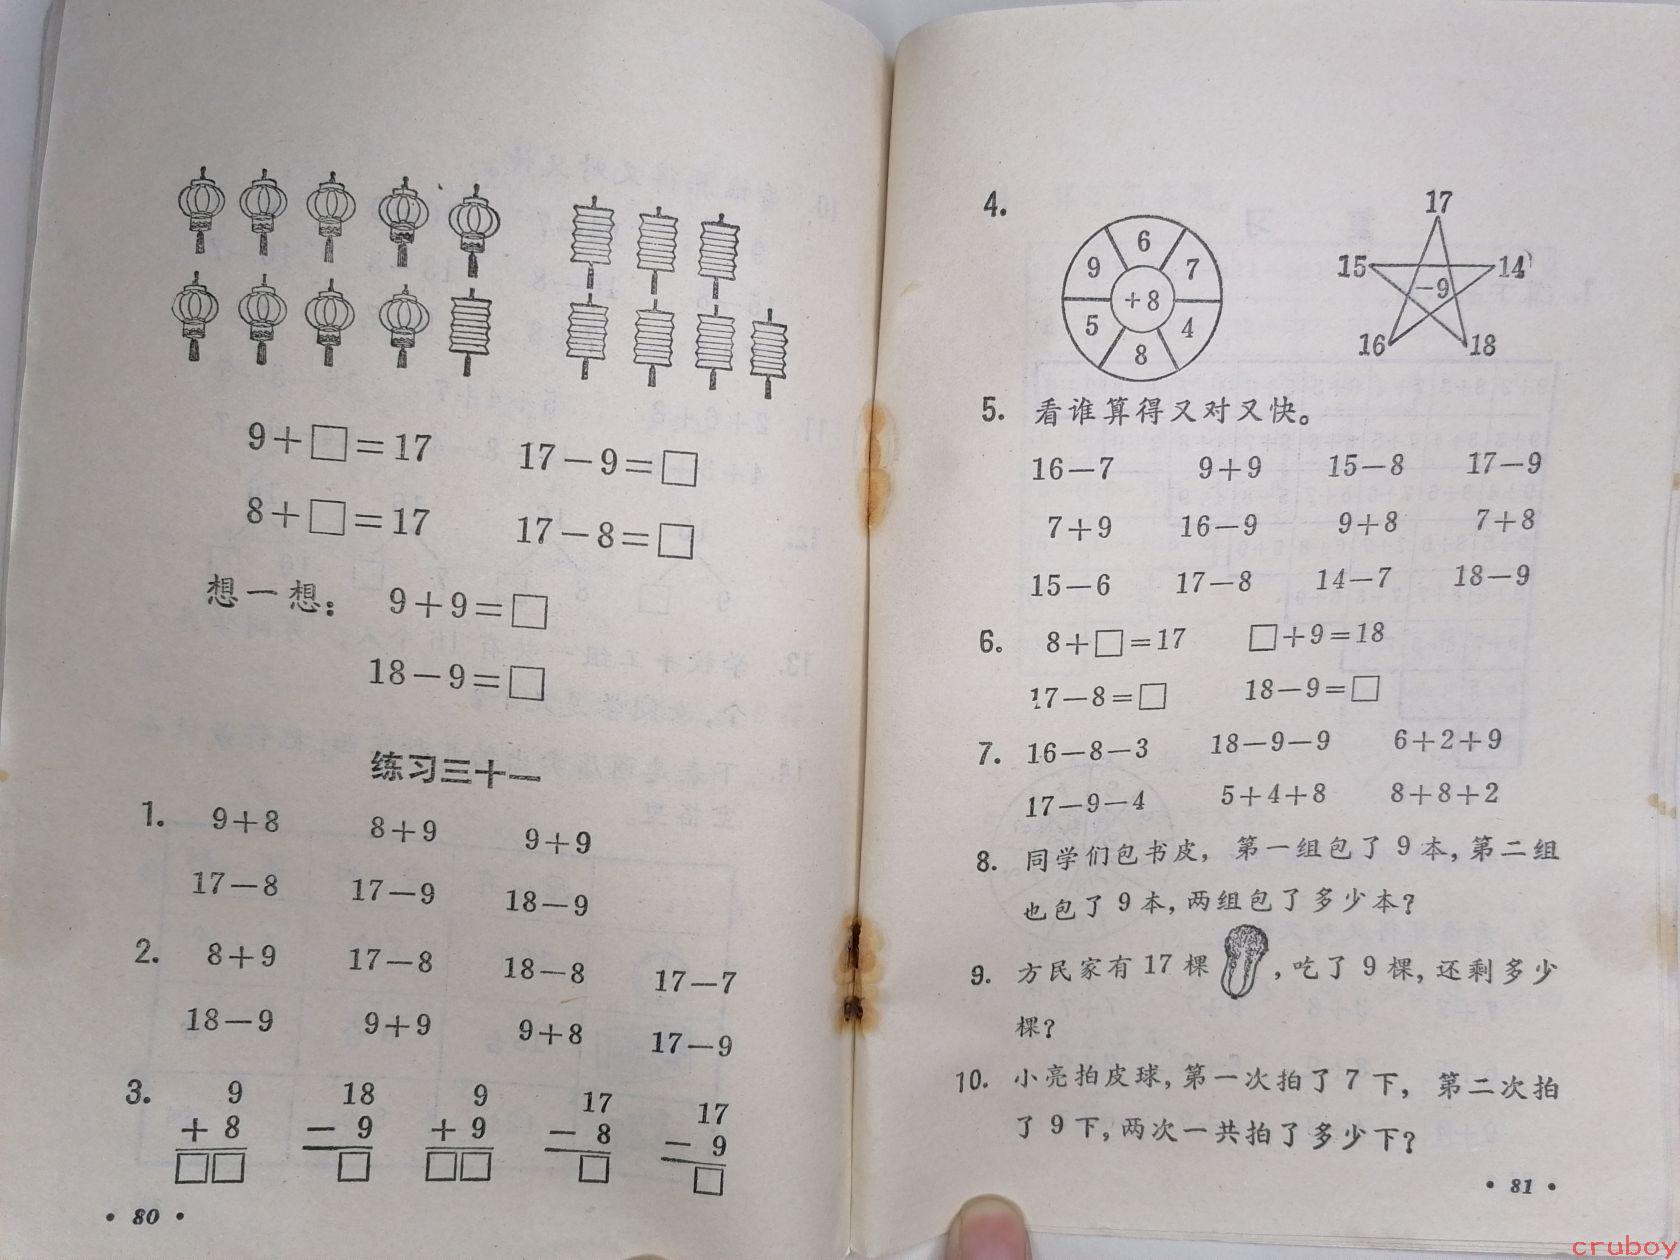 9+□=17 17-9=□
8+□=17 17-8=□
想一想： 9+9=□
18-9=□
练习三十一
1. 9+8 8+9 9+9
17-8 17-9 18-9
2. 8+9 17-8 18-8 17-7
18-9 9+9 9+8 17-9
3. 9 18 9 17 17
+8 -9 +9 -8 -9
□□ □ □□ □ □
• 80 •
4.
6
9 7
+8
5 4
8
17
15 14
-9
16 18
5. 看谁算得又对又快。
16-7 9+9 15-8 17-9
7+9 16-9 9+8 7+8
15-6 17-8 14-7 18-9
6. 8+□=17 □+9=18
17-8=□ 18-9=□
7. 16-8-3 18-9-9 6+2+9
17-9-4 5+4+8 8+8+2
8. 同学们包书皮，第一组包了 9 本，第二组
也包了 9 本，两组包了多少本？
9. 方民家有 17 棵 ，吃了 9 棵，还剩多少
棵？
10. 小亮拍皮球，第一次拍了 7 下，第二次拍
了 9 下，两次一共拍了多少下？
• 81 •
cruboy